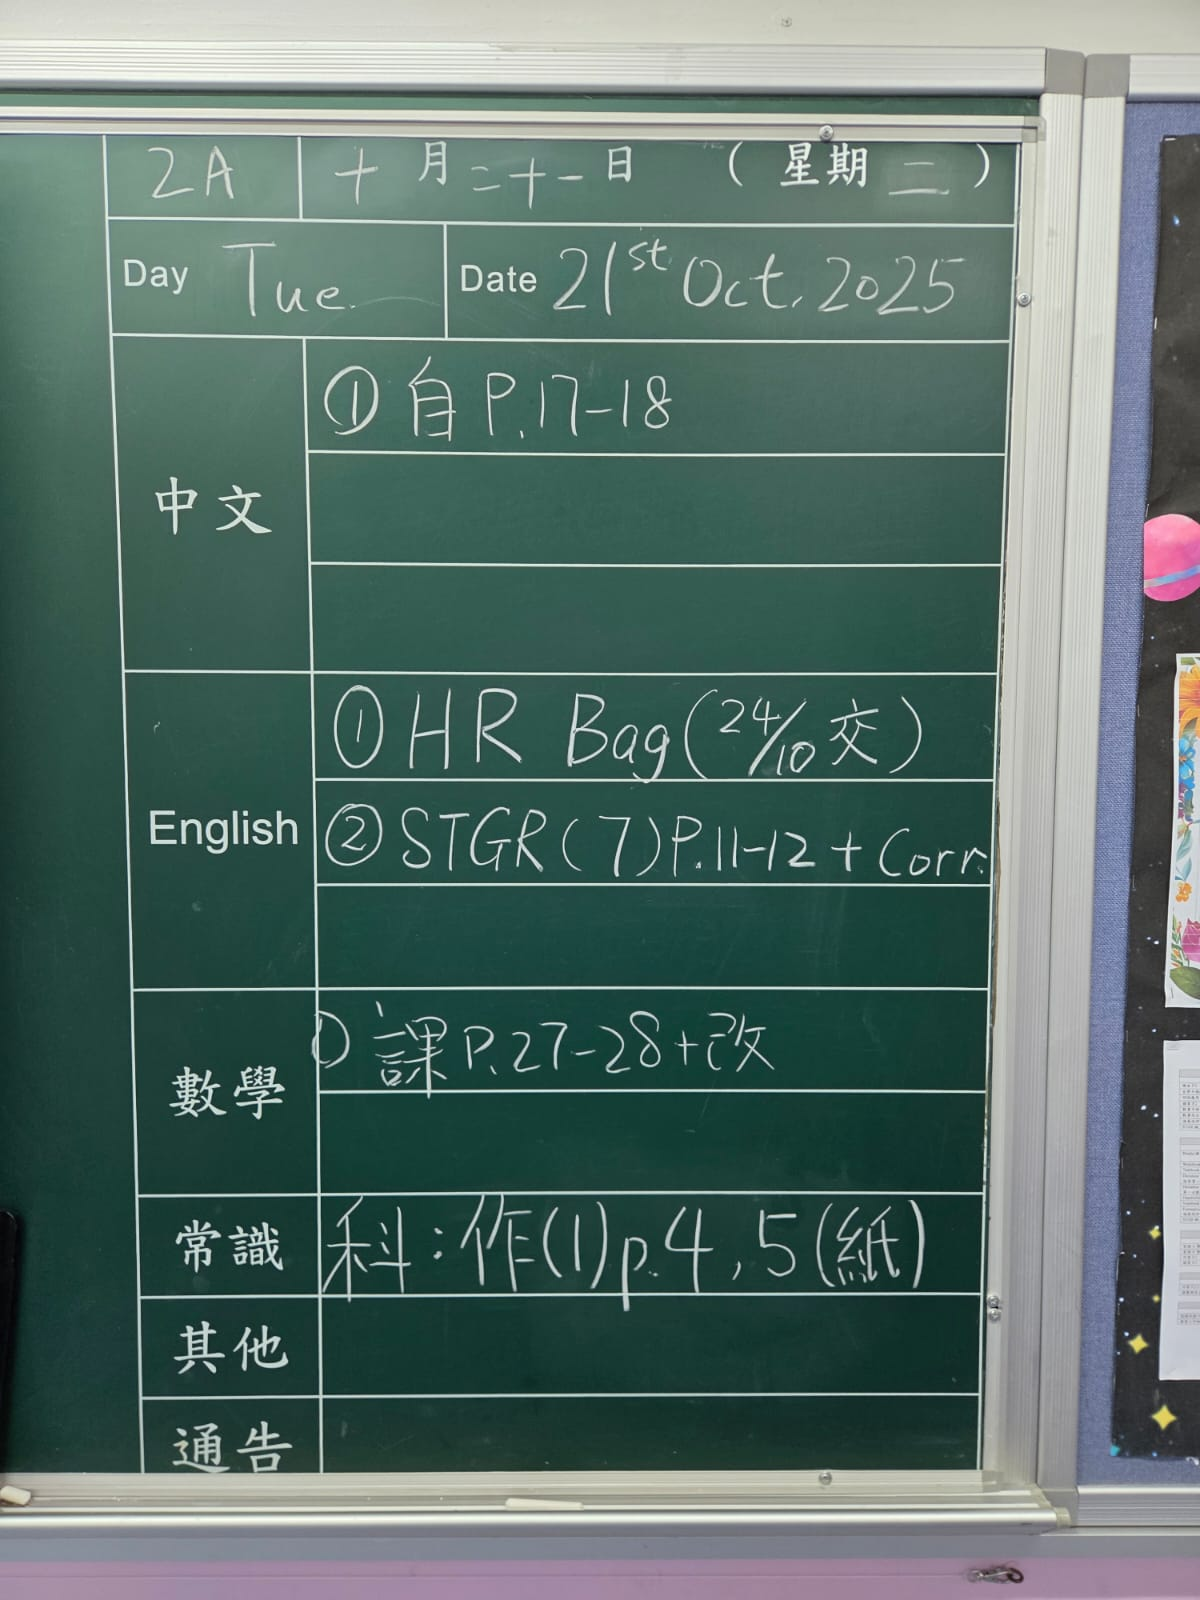 2A 十月二十一日 (星期二)
Day Tue. Date 21st Oct. 2025
中文
① 自 P.17-18
English
① HR Bag (24/10 交)
② STGR (7) P.11-12 + Corr.
數學
① 課 P.27-28 + 改
常識
科：作(1) p.4, 5 (紙)
其他
通告